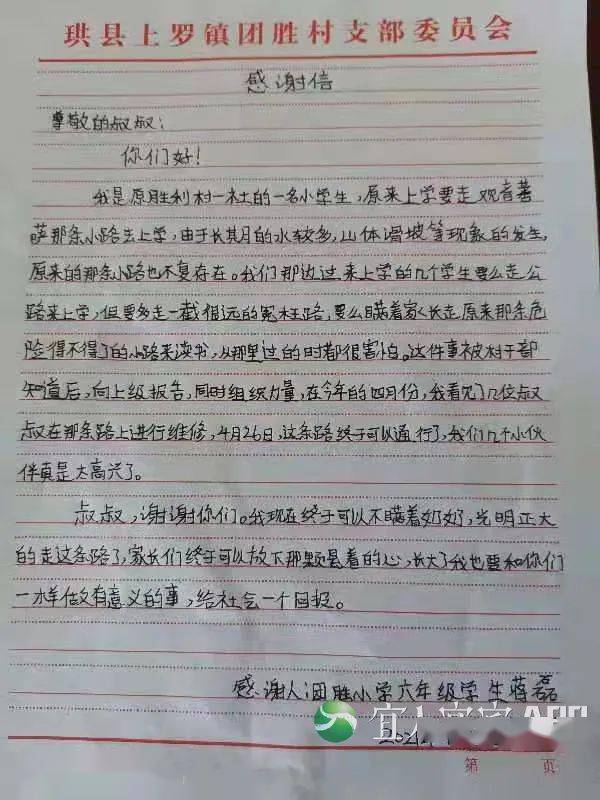 珙县上罗镇团胜村支部委员会
感谢信
尊敬的叔叔：
你们好！
我是原胜利村一社的一名小学生，原来上学要走观音菩
萨那条小路去上学，由于长期的水较多，山体滑坡等现象的发生，
原来的那条小路也不复存在。我们那边过来上学的几个学生要么走公
路来上学，但要多走一截很远的冤枉路，要么瞒着家长走原来那条危
险得不得了的小路来读书，从那里过的时都很害怕。这件事被村干部
知道后，向上级报告，同时组织力量，在今年的四月份，我看见了几位叔
叔在那条路上进行维修，4月26日，这条路终于可以通行了，我们几个小伙
伴真是太高兴了。
叔叔，谢谢你们。我现在终于可以不瞒着奶奶，光明正大
的走这条路了，家长们终于可以放下那颗悬着的心，长大了我也要和你们
一样做有意义的事，给社会一个回报。
感谢人：团胜小学六年级学生蒋磊
宜人宜宾APP
202
第 页